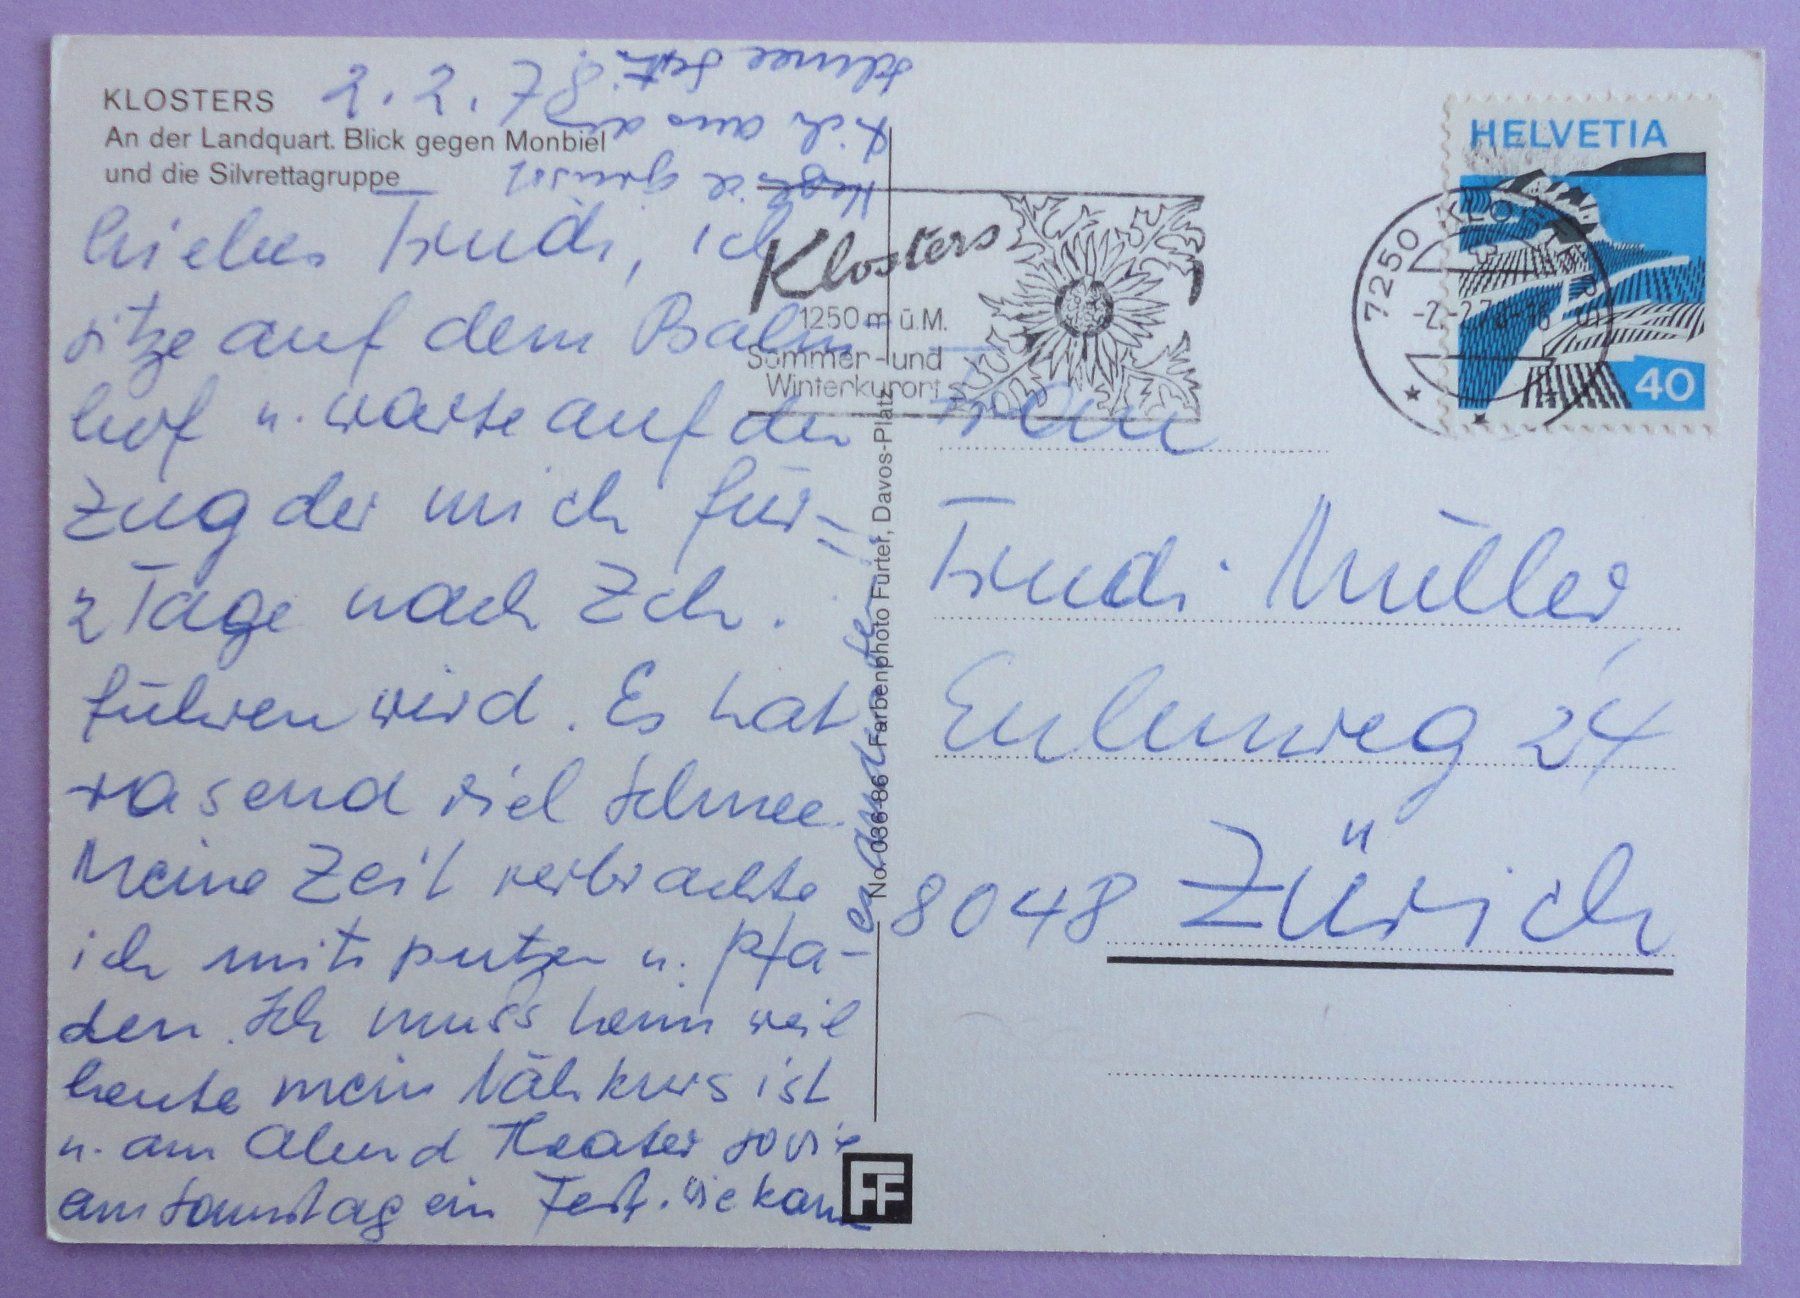 KLOSTERS
An der Landquart. Blick gegen Monbiel
und die Silvrettagruppe
2.2.78.
Liebes Trudi, ich
sitze auf dem Bahn
hof u. warte auf den
Zug der mich für
2 Tage nach Zch.
führen wird. Es hat
rasend viel Schnee.
Meine Zeit verbrachte
ich mit putzen u. Pfa-
den. Ich muss heim weil
heute mein Nähkurs ist
u. am Abend Theater sowie
am Samstag ein Fest. Wie kann
es
grüsst
Dich aus
Schnee
Klosters
1250 m ü.M.
Sommer- und
Winterkurort
7250 KLOSTERS
-2.-2.78-16
HELVETIA
40
No. 036-86 Farbenphoto Furter, Davos-Platz
Frau
Trudi Müller,
Eulenweg 24
8048 Zürich
FF